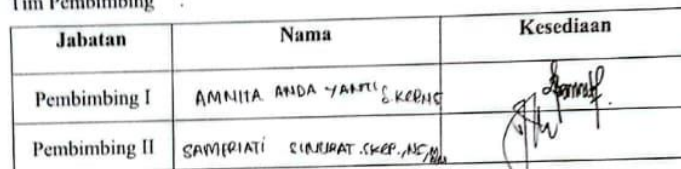 Tim Pembimbing :
Jabatan Nama Kesediaan
Pembimbing I AMNITA ANDA YANTI S.KEP.NS
Pembimbing II SAMFRIATI SINURAT.SKEP.,NS,